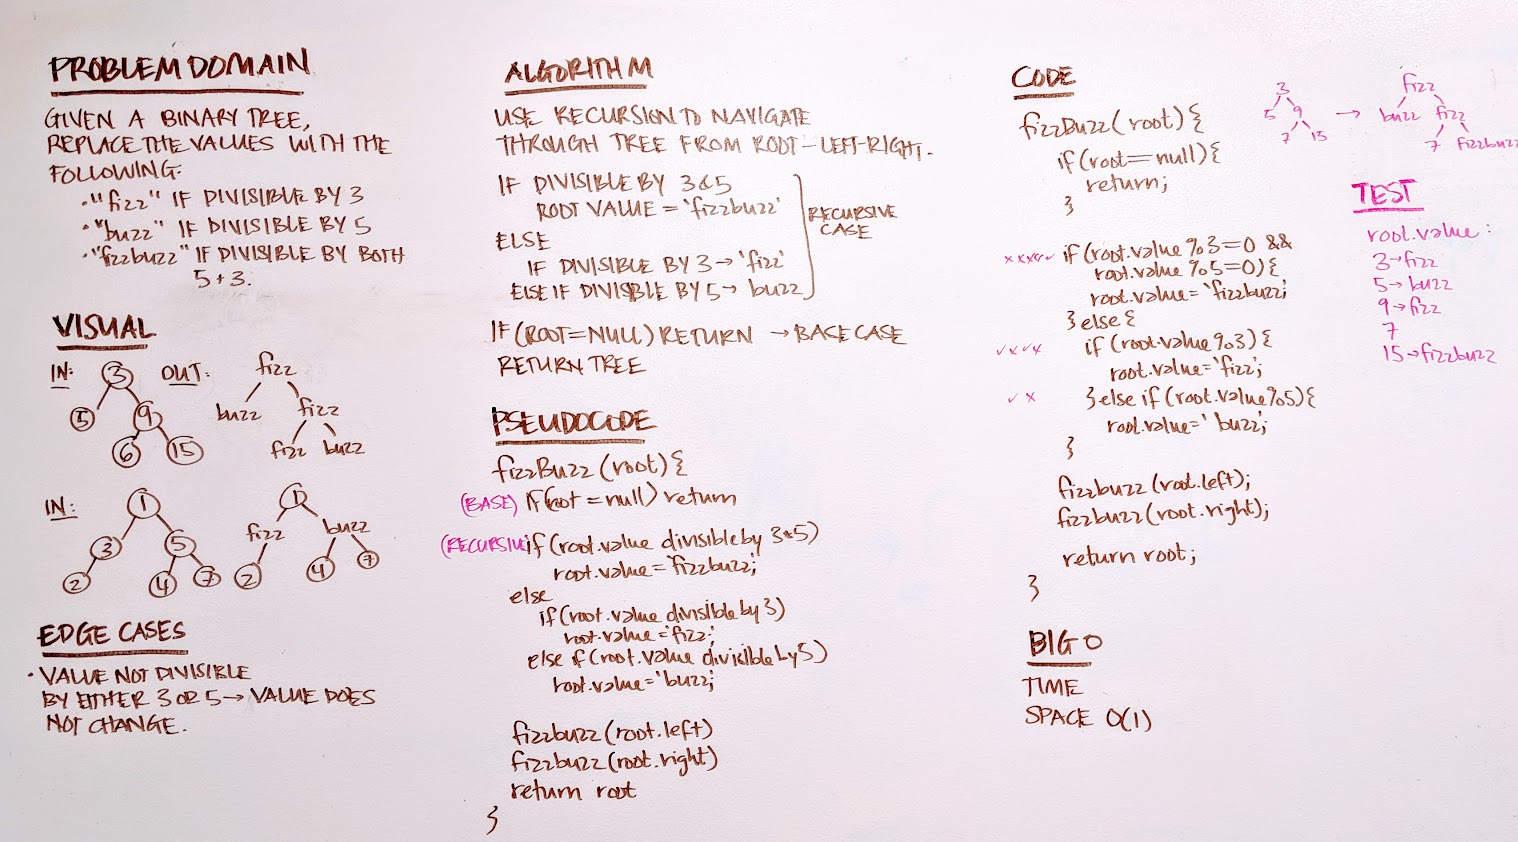 PROBLEM DOMAIN
GIVEN A BINARY TREE,
REPLACE THE VALUES WITH THE
FOLLOWING:
• "fizz" IF DIVISIBLE BY 3
• "buzz" IF DIVISIBLE BY 5
• "fizzbuzz" IF DIVISIBLE BY BOTH
5 + 3.
VISUAL
IN:
3
5
9
6
15
OUT:
fizz
buzz
fizz
fizz
buzz
IN:
1
3
5
2
4
7
1
fizz
buzz
2
4
7
EDGE CASES
• VALUE NOT DIVISIBLE
BY EITHER 3 OR 5 → VALUE DOES
NOT CHANGE.
ALGORITHM
USE RECURSION TO NAVIGATE
THROUGH TREE FROM ROOT-LEFT-RIGHT.
IF DIVISIBLE BY 3 & 5
ROOT VALUE = 'fizzbuzz'
ELSE
IF DIVISIBLE BY 3 → 'fizz'
ELSE IF DIVISIBLE BY 5 → buzz
RECURSIVE
CASE
IF (ROOT = NULL) RETURN → BASE CASE
RETURN TREE
PSEUDOCODE
fizzBuzz (root) {
(BASE) if (root = null) return
(RECURSIVE) if (root.value divisible by 3 & 5)
root.value = 'fizzbuzz;'
else
if (root.value divisible by 3)
root.value = 'fizz;'
else if (root.value divisible by 5)
root.value = 'buzz;'
fizzbuzz (root.left)
fizzbuzz (root.right)
return root
}
CODE
fizzBuzz (root) {
if (root == null) {
return;
}
xxxx✓ if (root.value %3=0 &&
root.value %5=0) {
root.value = 'fizzbuzz;
} else {
✓x✓x if (root.value %3) {
root.value = 'fizz;
✓x } else if (root.value %5) {
root.value = 'buzz;
}
fizzbuzz (root.left);
fizzbuzz (root.right);
return root;
}
BIG O
TIME
SPACE O(1)
3
5
9
7
15
→
fizz
buzz
fizz
7
fizzbuzz
TEST
root.value:
3→fizz
5→buzz
9→fizz
7
15→fizzbuzz